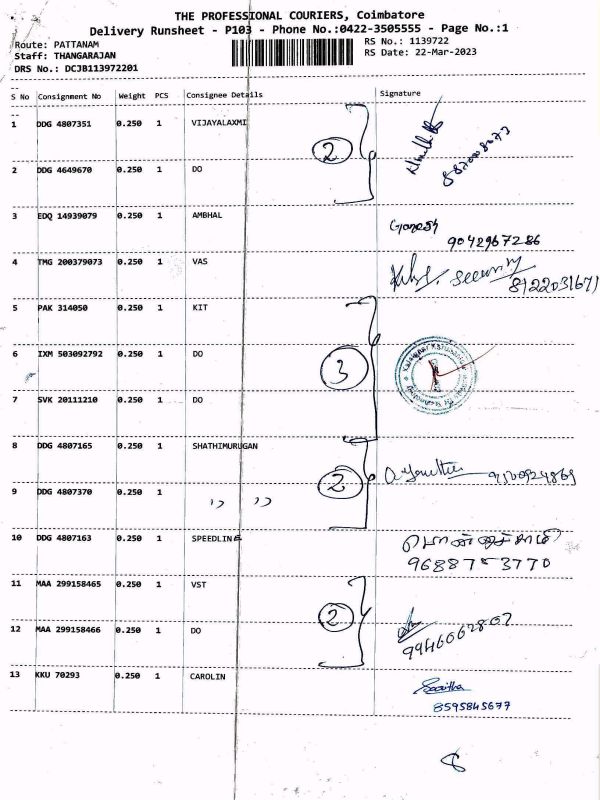 THE PROFESSIONAL COURIERS, Coimbatore
Delivery Runsheet - P103 - Phone No.:0422-3505555 - Page No.:1
Route: PATTANAM
RS No.: 1139722
Staff: THANGARAJAN
RS Date: 22-Mar-2023
DRS No.: DCJB113972201
S No Consignment No Weight PCS Consignee Details Signature
1 DDG 4807351 0.250 1 VIJAYALAXMI
2
2 DDG 4649670 0.250 1 DO
3 EDQ 14939079 0.250 1 AMBHAL Ganesh
9042967286
4 TMG 200379073 0.250 1 VAS security
5 PAK 314050 0.250 1 KIT
6 IXM 503092792 0.250 1 DO 3
7 SVK 20111210 0.250 1 DO
8 DDG 4807165 0.250 1 SHATHIMURUGAN
2
9 DDG 4807370 0.250 1 ,, ,,
10 DDG 4807163 0.250 1 SPEEDLINE பொன்னுச்சாமி
9688753770
11 MAA 299158465 0.250 1 VST
2
12 MAA 299158466 0.250 1 DO 9946062807
13 KKU 70293 0.250 1 CAROLIN Savitha
8595845677